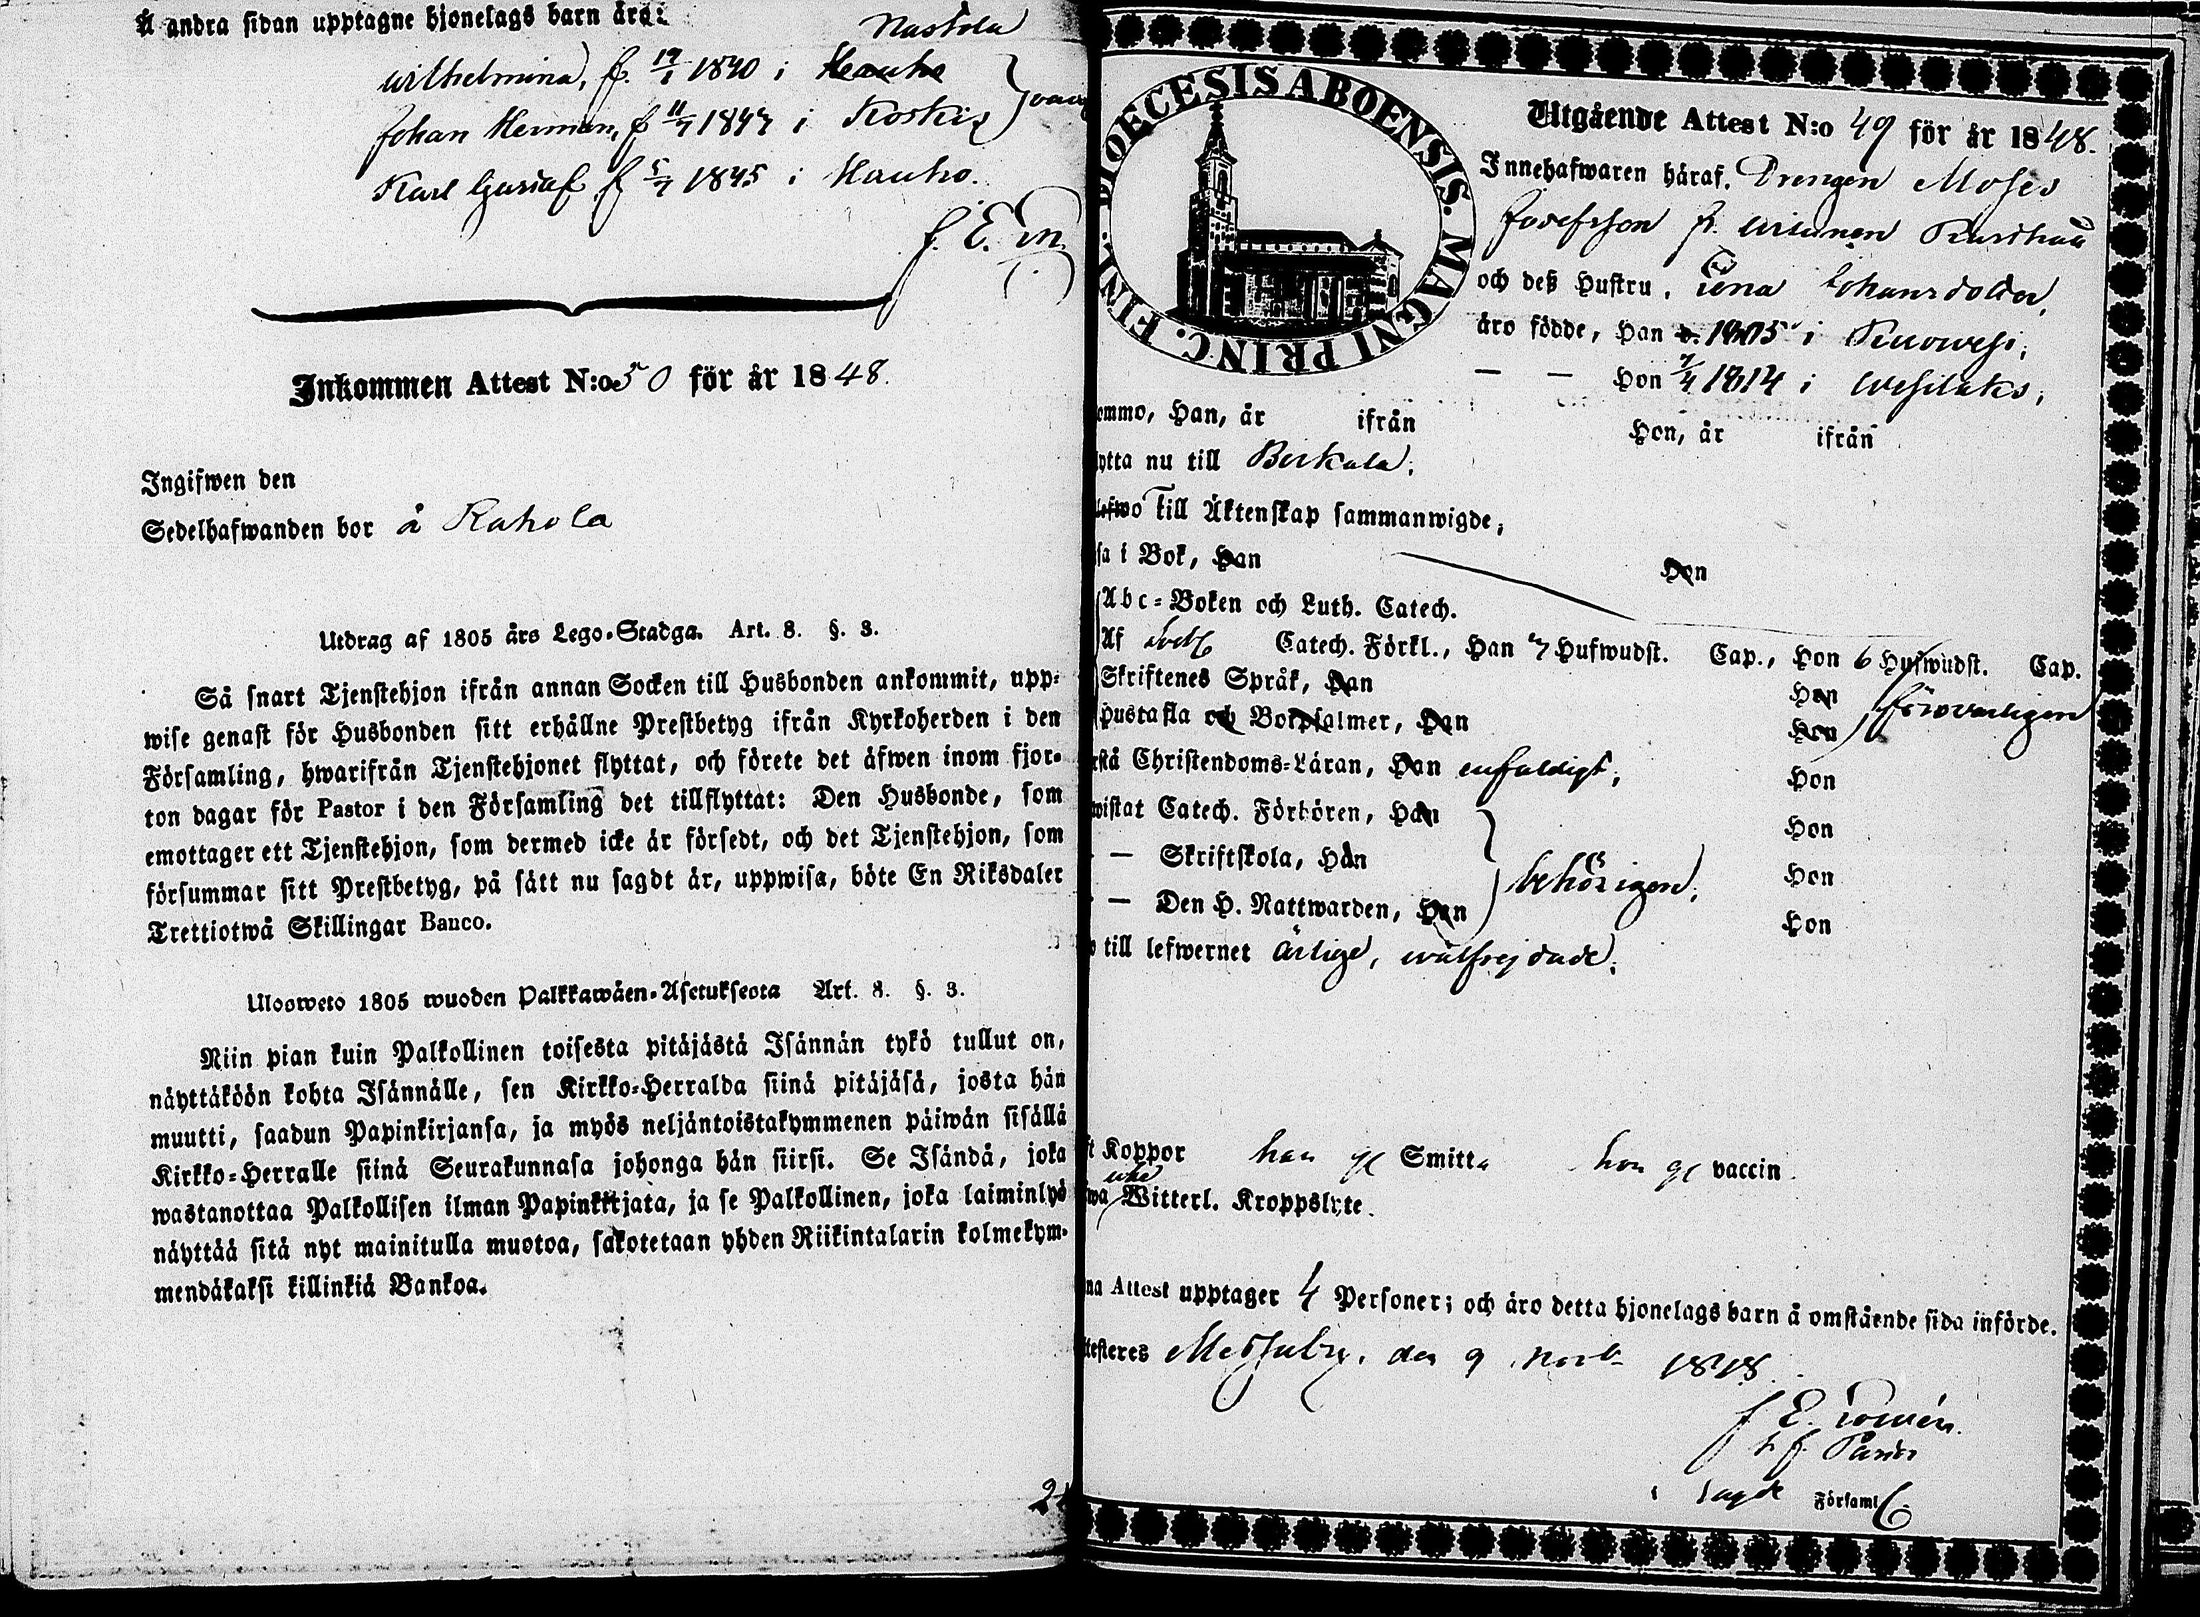 Å andra sidan upptagne hjonelags barn äro:
Nastola
Wilhelmina, f. 19/1 1840 i Hauho
Johan Herman, f 11/7 1847 i Koskis
Karl Gustaf f 5/7 1845 i Hauho.
J. E.
Inkommen Attest N:o 50 för år 1848.
Ingifwen den
Sedelhafwanden bor å Rahola
Utdrag af 1805 års Lego-Stadga. Art. 8. §. 3.
Så snart Tjenstehjon ifrån annan Socken till Husbonden ankommit, upp-
wise genast för Husbonden sitt erhållne Prestbetyg ifrån Kyrkoherden i den
Församling, hwarifrån Tjenstehjonet flyttat, och förete det äfwen inom fjor-
ton dagar för Pastor i den Församling det tillflyttat: Den Husbonde, som
emottager ett Tjenstehjon, som dermed icke är försedt, och det Tjenstehjon, som
försummar sitt Prestbetyg, på sätt nu sagdt är, uppwisa, böte En Riksdaler
Trettiotwå Skillingar Banco.
Ulosweto 1805 wuoden Palkkawäen-Asetuksesta Art. 8. §. 3.
Niin pian kuin Palkollinen toisesta pitäjästä Isännän tykö tullut on,
näyttäköön kohta Isännälle, sen Kirkko-Herralda siinä pitäjäsä, josta hän
muutti, saadun Papinkirjansa, ja myös neljäntoistakymmenen päiwän sisällä
Kirkko-Herralle siinä Seurakunnasa johonga hän siirsi. Se Isändä, joka
wastanottaa Palkollisen ilman Papinkirjata, ja se Palkollinen, joka laiminlyö
näyttää sitä nyt mainitulla muotoa, sakotetaan yhden Riikintalarin kolmekym-
mendäkaksi killinkiä Bankoa.
DIOECESIS ABOENSIS. MAGNI PRINC. FINL.
Utgående Attest N:o 49 för år 1848.
Innehafwaren häraf, Drengen Moses
Josefsson fr.
och deß Hustru, Lena Johansdotter,
äro födde, Han d. 1805 i Ruowesi;
— — Hon 7/4 1814 i Wesilaks;
ommo, Han, år ifrån Hon, år ifrån
lytta nu till Birkala;
lefwo till Äktenskap sammanwigde;
sa i Bok, Han Hon
Abc-Boken och Luth. Catech.
Af Catech. Förkl., Han 7 Hufwudst. Cap., Hon 6 Hufwudst. Cap.
Skriftenes Språk, Han Hon
Hustafla och Botpsalmer, Han Hon förswarligen
rstå Christendoms-Läran, Han enfaldigt; Hon
wistat Catech. Förhören, Han Hon
— Skriftskola, Han behörigen; Hon
— Den H. Nattwarden, Han Hon
o till lefwernet ärlige, wälfrejdade;
t Koppor han gl Smitta hon gl vaccin
wa utan Witterl. Kroppslyte.
na Attest upptager 4 Personer; och äro detta hjonelags barn å omstående sida införde.
ttesteres Messuby, den 9 Novb 1848
J. E.
i sagde Församl